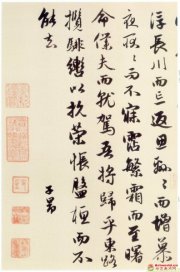 浮長川而忘返思緜緜而增慕
夜耿耿而不寐霑繁霜而至曙
命僕夫而就駕吾將歸乎東路
攬騑轡以抗策悵盤桓而不
能去
子昂